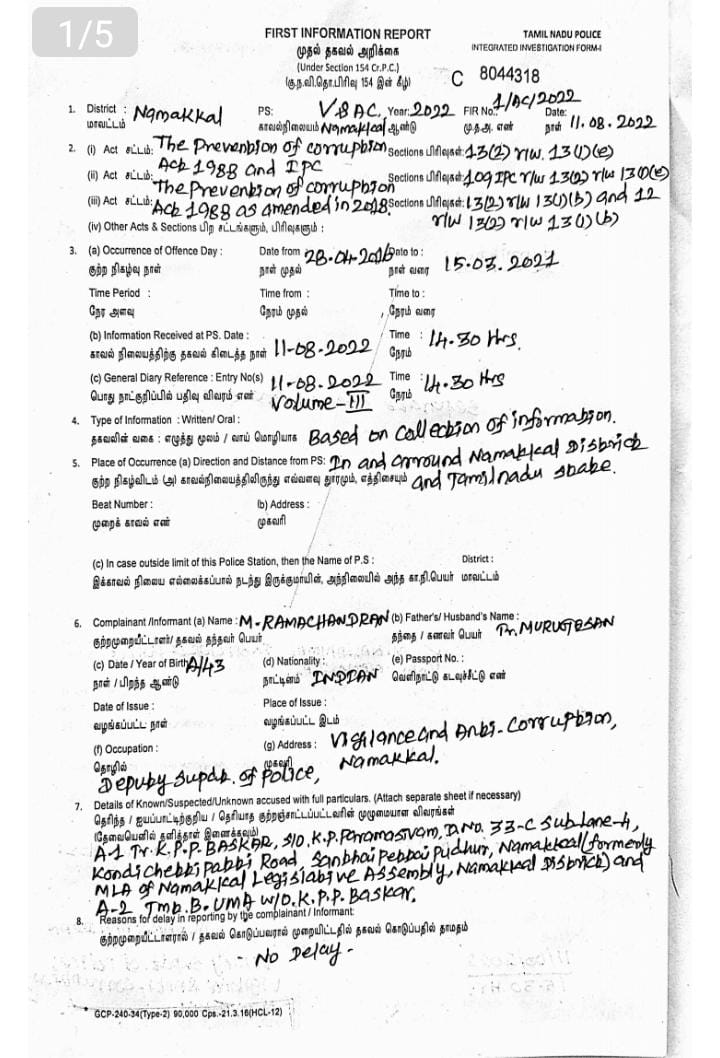 1/5
FIRST INFORMATION REPORT
TAMIL NADU POLICE
முதல் தகவல் அறிக்கை
INTEGRATED INVESTIGATION FORM-I
(Under Section 154 Cr.P.C.)
(கு.ந.வி.தொ.பிரிவு 154 இன் கீழ்)
C 8044318
1. District : Namakkal PS: V&AC, Year: 2022 FIR No.: 1/AC/2022 Date:
மாவட்டம் காவல்நிலையம் Namakkal ஆண்டு மு.த.அ. எண் நாள் 11.08.2022
2. (i) Act சட்டம்: The Prevention of corruption Sections பிரிவுகள்: 13(2) r/w. 13(1)(e)
Act 1988 and IPC
(ii) Act சட்டம்: The Prevention of corruption Sections பிரிவுகள்: 109 IPC r/w 13(2) r/w 13(1)(e)
(iii) Act சட்டம்: Act 1988 as amended in 2018 Sections பிரிவுகள்: 13(2) r/w 13(1)(b) and 12
r/w 13(2) r/w 13(1)(b)
(iv) Other Acts & Sections பிற சட்டங்களும், பிரிவுகளும் :
3. (a) Occurrence of Offence Day : Date from 28-04-2016 Date to : 15.03.2021
குற்ற நிகழ்வு நாள் நாள் முதல் நாள் வரை
Time Period : Time from : Time to :
நேர அளவு நேரம் முதல் நேரம் வரை
(b) Information Received at PS. Date : Time :
காவல் நிலையத்திற்கு தகவல் கிடைத்த நாள் 11-08-2022 நேரம் 14.30 Hrs.
(c) General Diary Reference : Entry No(s) 11-08-2022 Time : 14.30 Hrs
பொது நாட்குறிப்பில் பதிவு விவரம் எண் Volume-III நேரம்
4. Type of Information : Written/ Oral :
தகவலின் வகை : எழுத்து மூலம் / வாய் மொழியாக Based on Collection of information.
5. Place of Occurrence (a) Direction and Distance from PS: In and arround Namakkal District
குற்ற நிகழ்விடம் (அ) காவல்நிலையத்திலிருந்து எவ்வளவு தூரமும், எத்திசையும் and Tamilnadu state.
Beat Number : (b) Address :
முறைக் காவல் எண் முகவரி
(c) In case outside limit of this Police Station, then the Name of P.S : District :
இக்காவல் நிலைய எல்லைக்கப்பால் நடந்து இருக்குமாயின், அந்நிலையில் அந்த கா.நி.பெயர் மாவட்டம்
6. Complainant /Informant (a) Name : M-RAMACHANDRAN (b) Father's/ Husband's Name :
குற்றமுறையீட்டாளர்/ தகவல் தந்தவர் பெயர் தந்தை / கணவர் பெயர் Tr. MURUGESAN
(c) Date / Year of Birth A/43 (d) Nationality : (e) Passport No. :
நாள் / பிறந்த ஆண்டு நாட்டினம் INDIAN வெளிநாட்டு கடவுச்சீட்டு எண்
Date of Issue : Place of Issue :
வழங்கப்பட்ட நாள் வழங்கப்பட்ட இடம்
(f) Occupation : (g) Address : Vigilance and Anti-Corruption,
தொழில் முகவரி Namakkal.
Deputy Supdt. of Police,
7. Details of Known/Suspected/Unknown accused with full particulars. (Attach separate sheet if necessary)
தெரிந்த / ஐயப்பாட்டிற்குரிய / தெரியாத குற்றஞ்சாட்டப்பட்டவரின் முழுமையான விவரங்கள்
(தேவையெனில் தனித்தாள் இணைக்கவும்)
A-1 Tr. K.P.P. BASKAR, S/o, K.P. Paramasivam, D.No. 33-C Sub lane-4,
Kondichettipatti Road, Santhaipettai Pudhur, Namakkal (formerly
MLA of Namakkal Legislative Assembly, Namakkal District) and
A-2 Tmt. B. UMA W/o. K.P.P. Baskar.
8. Reasons for delay in reporting by the complainant / Informant:
குற்றமுறையீட்டாளரால் / தகவல் கொடுப்பவரால் முறையிட்டதில் தகவல் கொடுப்பதில் தாமதம்
- No Delay -
* GCP-240-34(Type-2) 90,000 Cps.-21.3.16(HCL-12)